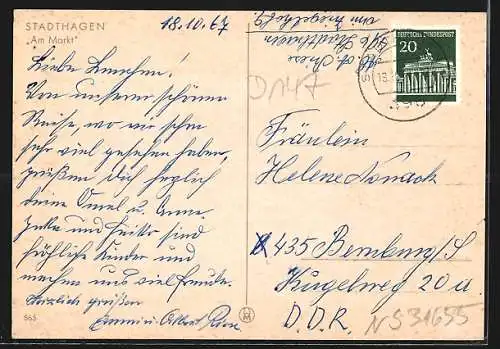 STADTHAGEN
"Am Markt"
18.10.67
Liebe Lenchen!
Von unserer schönen
Reise, wo wir schon
sehr viel gesehen haben,
grüßen dich herzlich
deine Onkel u. Anne.
und Heike sind
fröhliche Kinder und
machen uns viel Freude.
Herzlich grüßen
u. Albert
565
Stadthagen
DEUTSCHE BUNDESPOST
20
D147
Fräulein
Helene Nowack
X 435 Bernburg/S
Kugelweg 20 a.
D.D.R.
NS31655